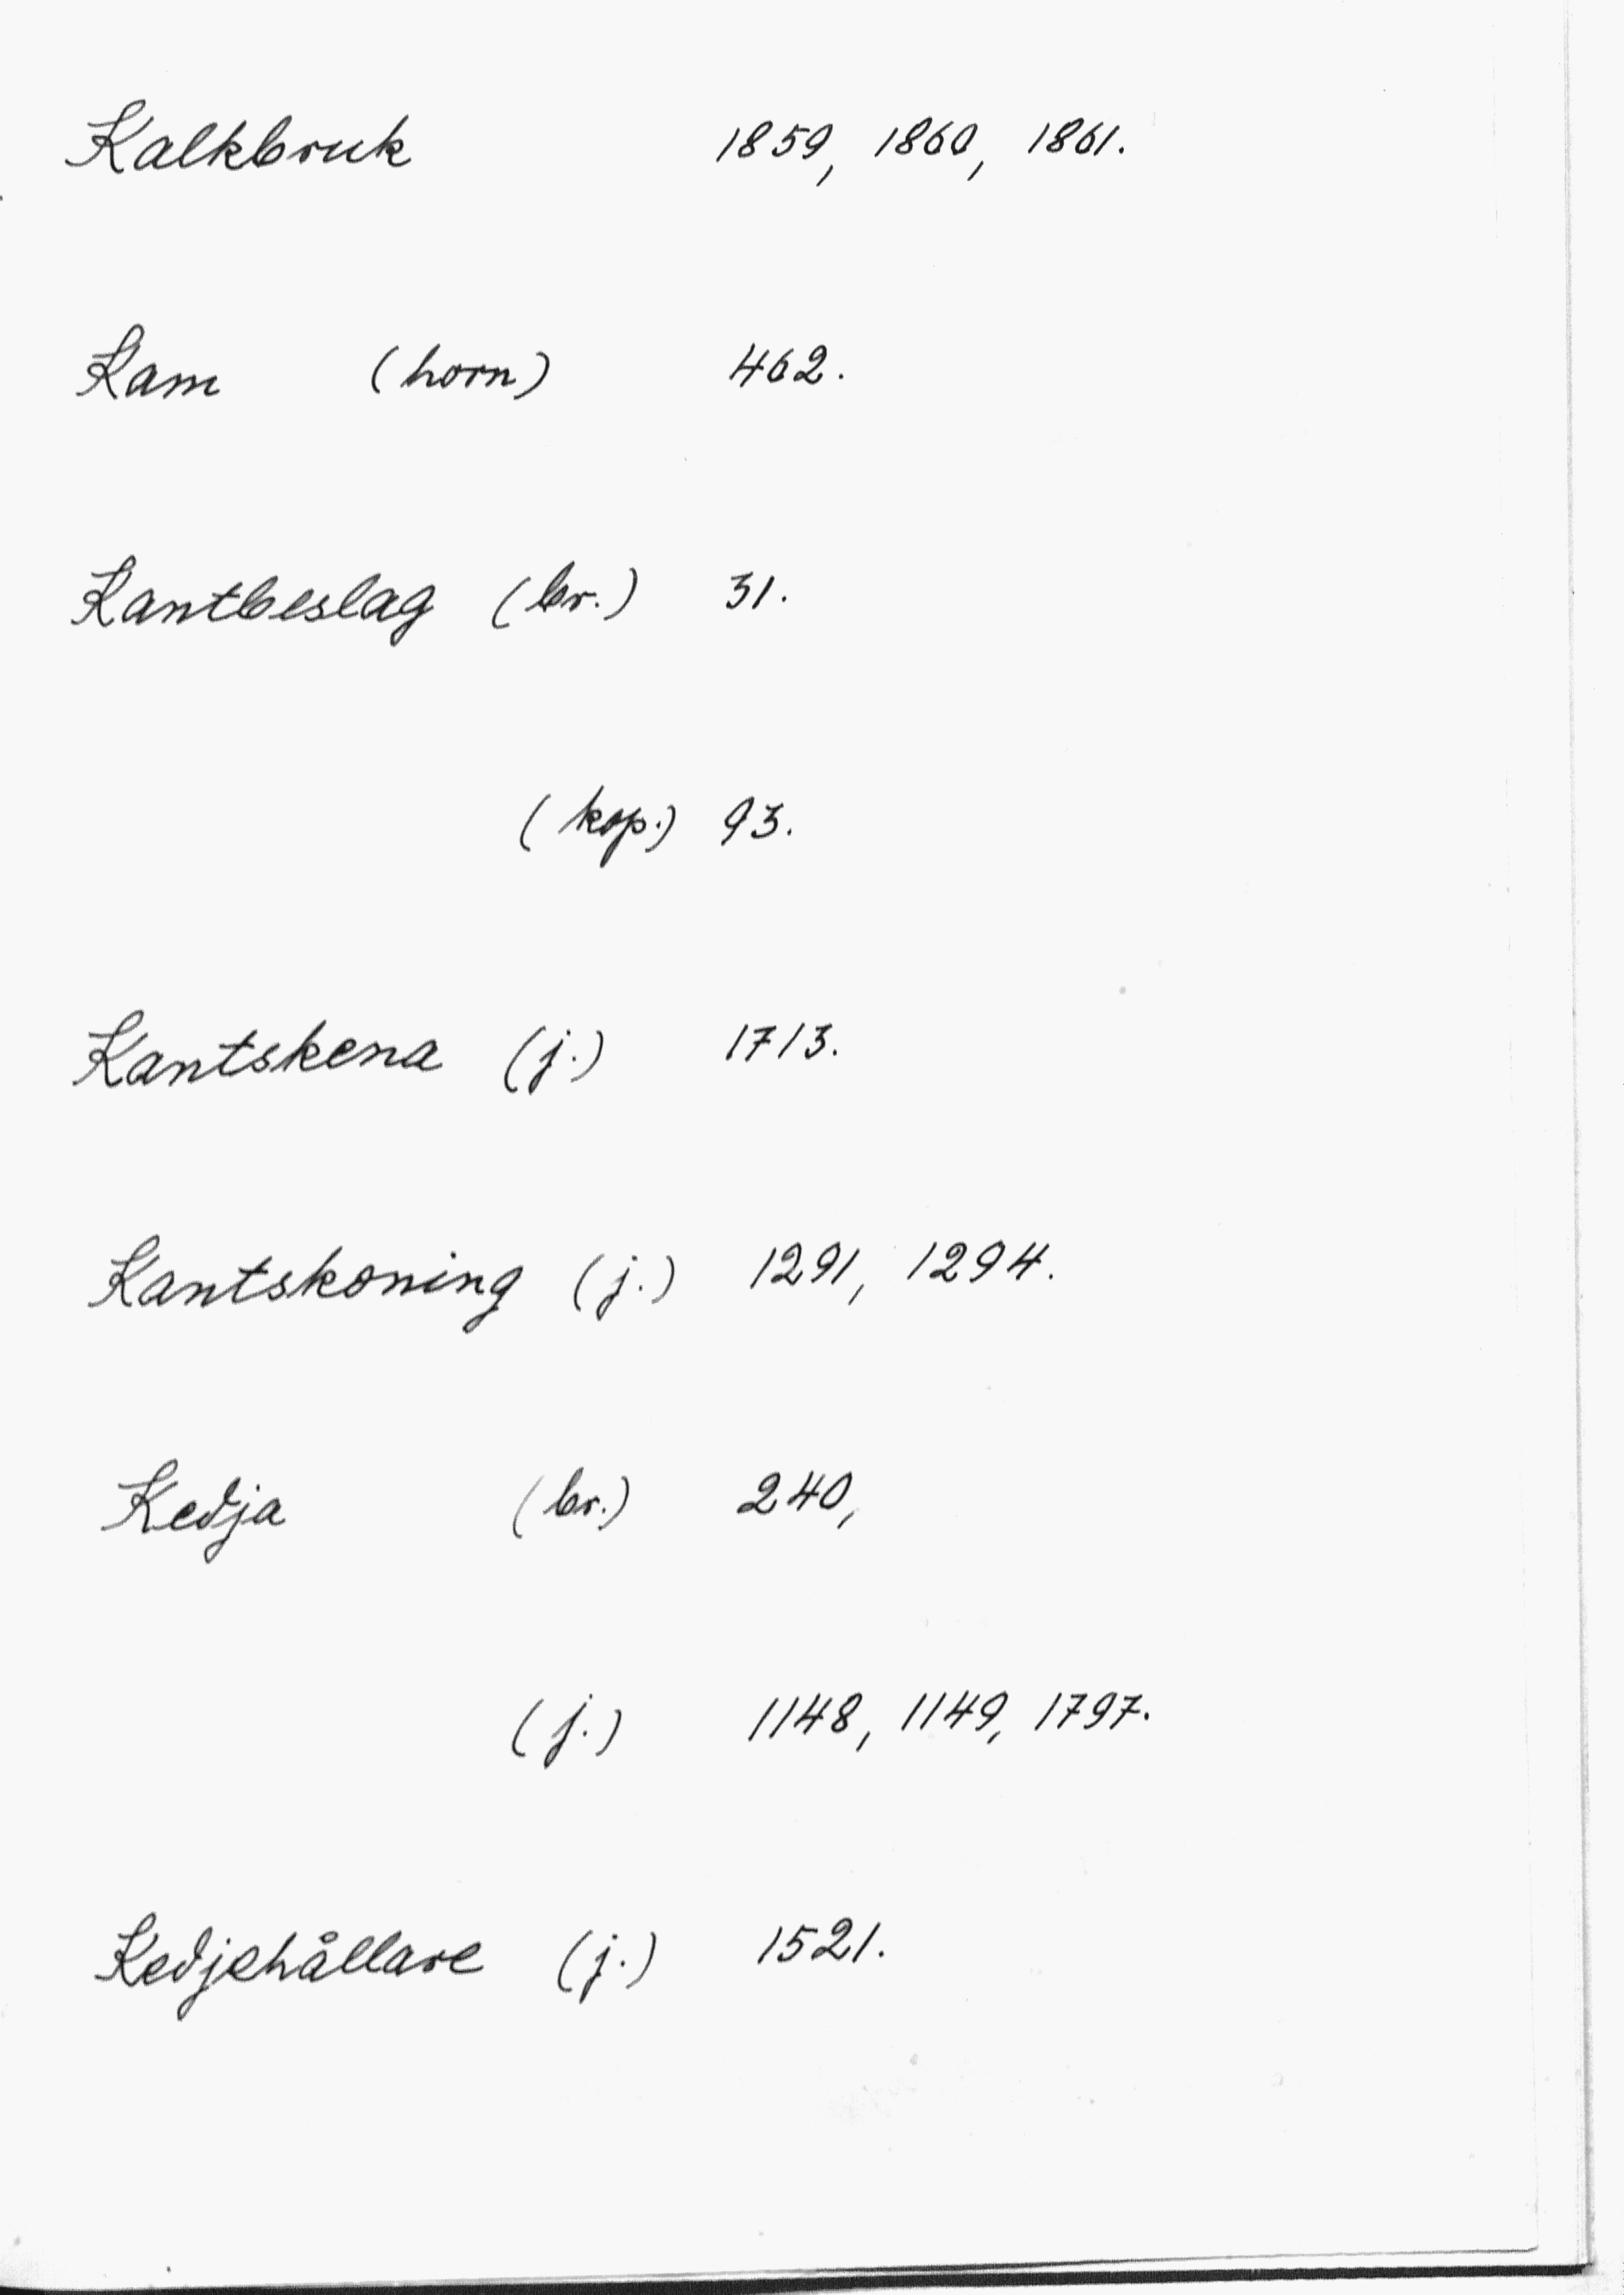 Kalkbruk 1859, 1860, 1861.
Kam (horn) 462.
Kantbeslag (br.) 31.
(kop.) 93.
Kantskena (j.) 1713.
Kantskoning (j.) 1291, 1294.
Kedja (br.) 240,
(j.) 1148, 1149, 1797.
Kedjehållare (j.) 1521.